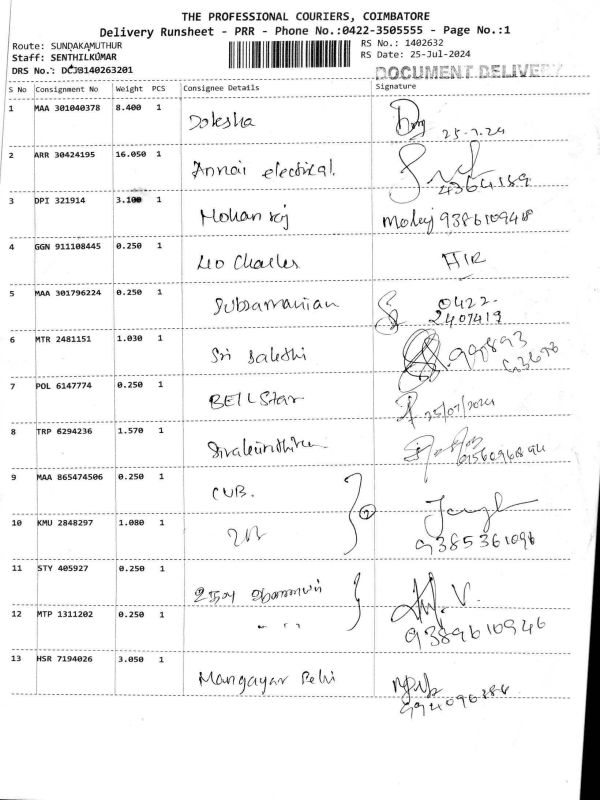 THE PROFESSIONAL COURIERS, COIMBATORE
Delivery Runsheet - PRR - Phone No.:0422-3505555 - Page No.:1
Route: SUNDAKAMUTHUR
RS No.: 1402632
Staff: SENTHILKUMAR
RS Date: 25-Jul-2024
DRS No.: DCJB140263201
DOCUMENT DELIVERY
S No Consignment No Weight PCS Consignee Details Signature
1 MAA 301040378 8.400 1
25-7-24
2 ARR 30424195 16.050 1 Annai electrical.
4364189
3 DPI 321914 3.100 1 Mohan raj 9386109418
4 GGN 911108445 0.250 1 Leo Charles
5 MAA 301796224 0.250 1 Subramanian 0422-
2407419
6 MTR 2481151 1.030 1 Sri Sakthi 990893
7 POL 6147774 0.250 1 BELL Star 25/07/2024
8 TRP 6294236 1.570 1
9 MAA 865474506 0.250 1 CUB. 2
10 KMU 2848297 1.080 1
9385361096
11 STY 405927 0.250 1
12 MTP 1311202 0.250 1 " "
9389610946
13 HSR 7194026 3.050 1 Mangayar